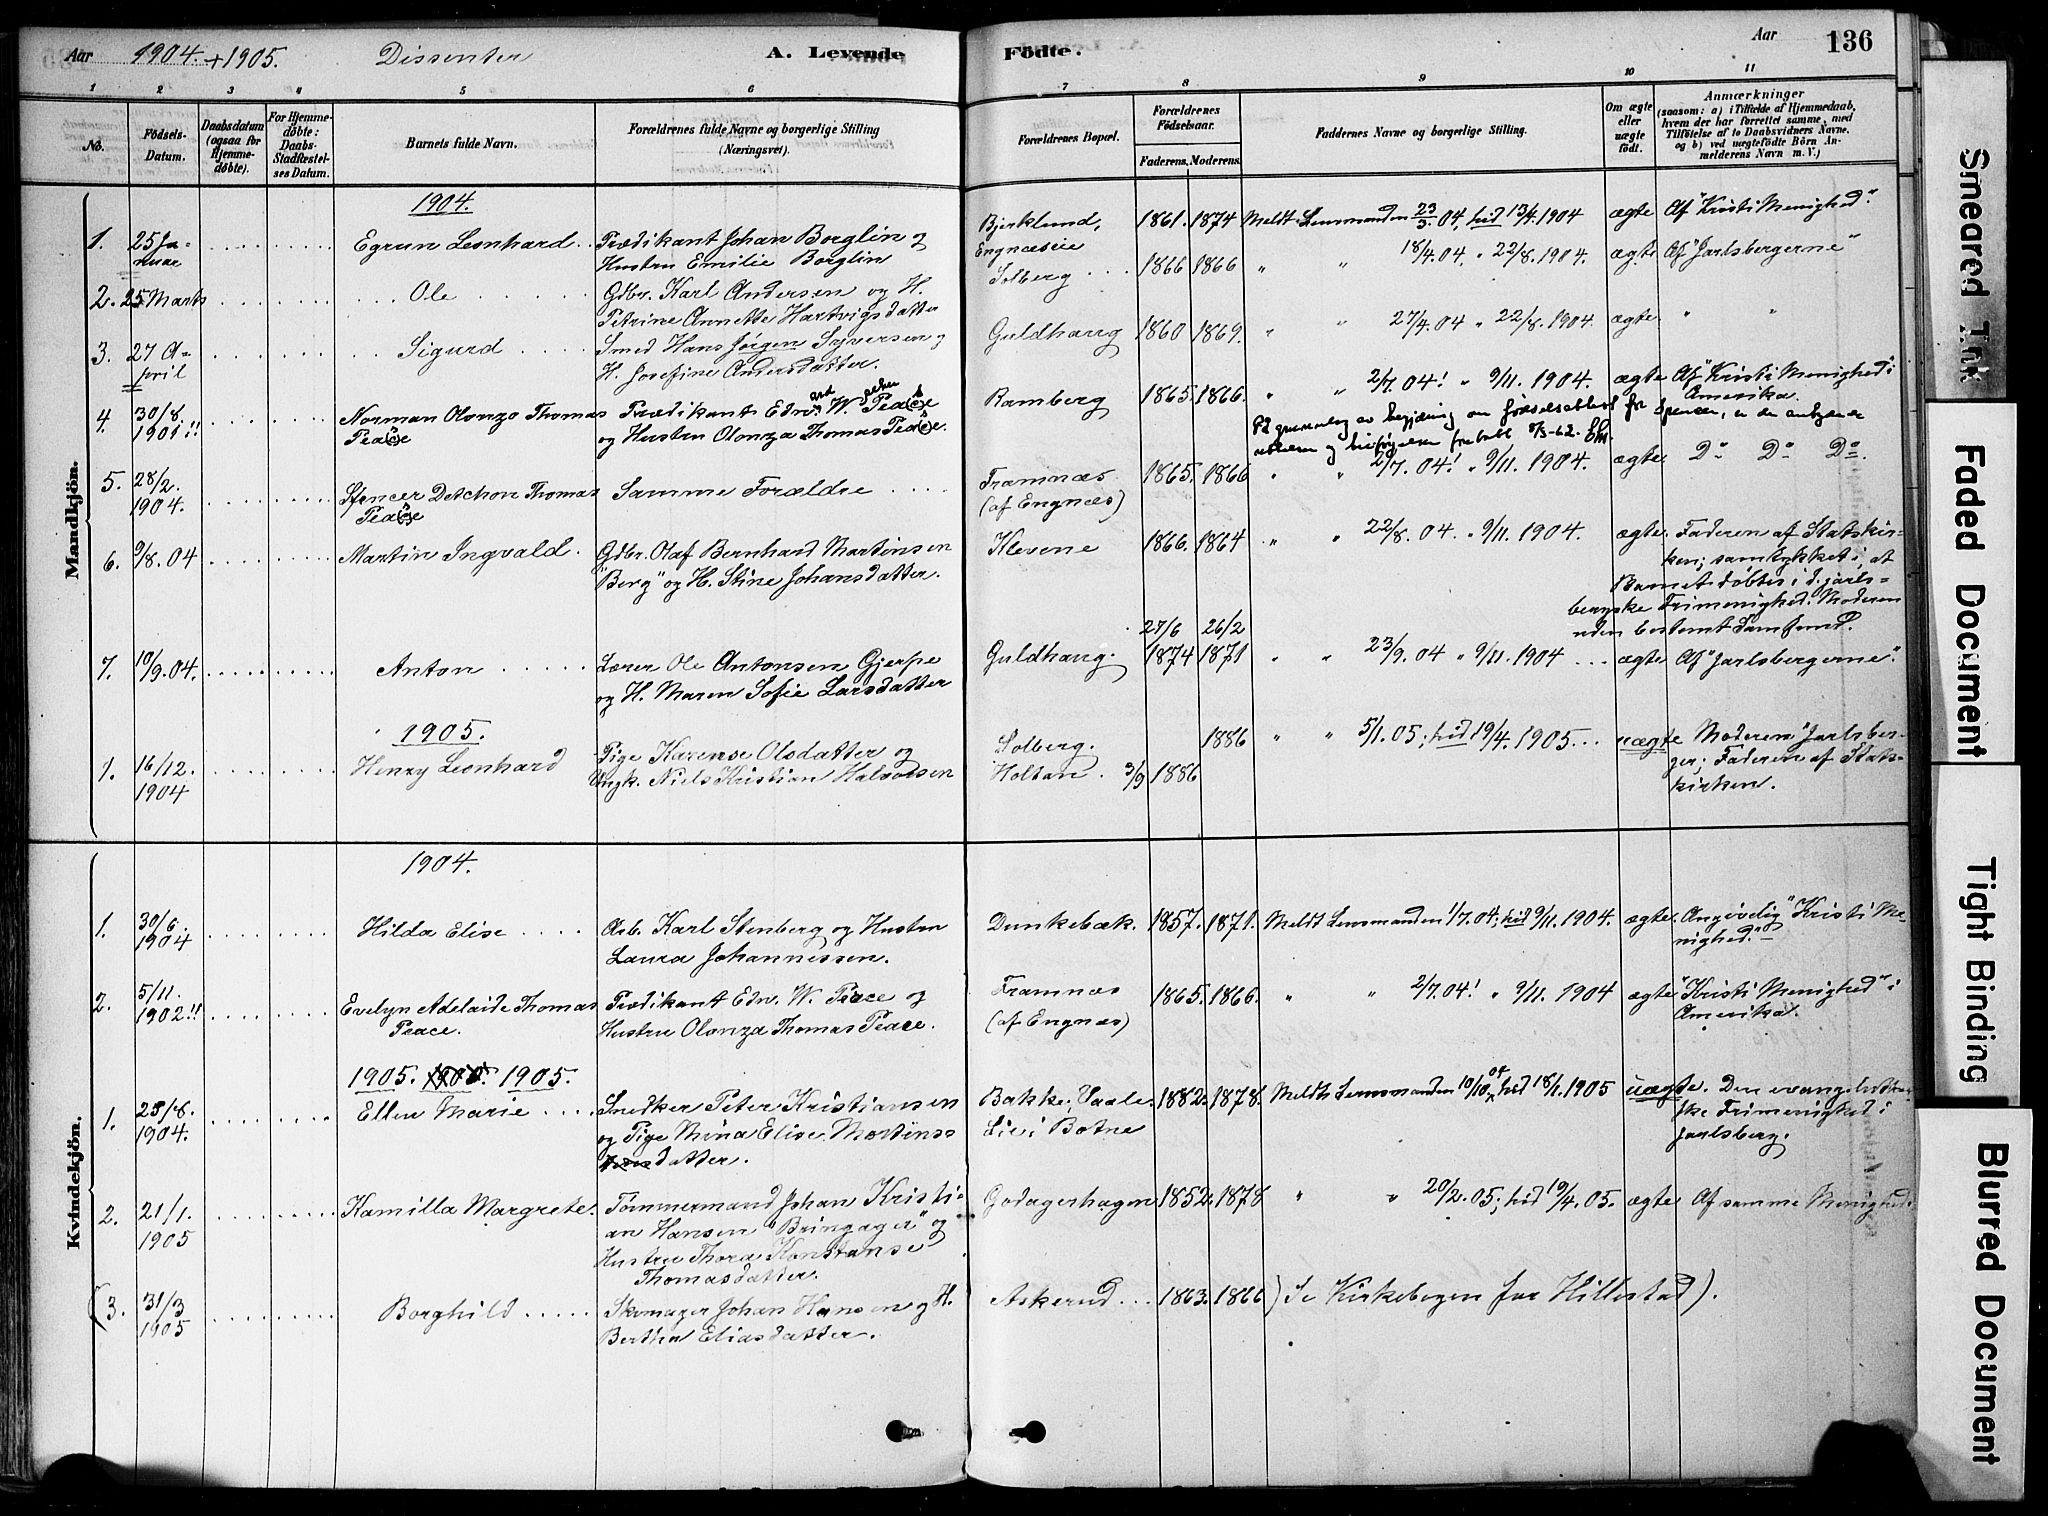 Aar 1904 + 1905. Dissenter A. Levende Födte. Aar 136
1 2 3 4 5 6 7 8 9 10 11
No. Födsels-Datum. Daabsdatum (ogsaa for Hjemme-döbte). For Hjemme-döbte: Daabs-Stadfæstel-ses Datum. Barnets fulde Navn. Forældrenes fulde Navne og borgerlige Stilling (Næringsvei). Forældrenes Bopæl. Forældrenes Födselsaar. Faderens. Moderens. Faddernes Navne og borgerlige Stilling. Om ægte eller uægte födt. Anmærkninger (saasom: a) i Tilfælde af Hjemmedaab, hvem der har forrettet samme, med Tilföielse af to Daabsvidners Navne, og b) ved uægtefödte Börn An-melderens Navn m. V.)
Mandkjön.
1904.
1. 25 Ja-nuar Egrun Leonhard Prædikant Johan Borglin og Hustru Emilie Borglin Bjerklund, Engnæseie 1861. 1874 Meldt Lensmanden 23/3.04, hid 13/4.1904 ægte Af "Kristi Menighed".
2. 25 Marts Ole Gdbr. Karl Andersen og H. Petrine Annette Hartvigsdatter Solberg 1866 1866 " " 18/4.04, " 22/8.1904. ægte Af "Jarlsbergerne"
3. 27 A-pril Sigurd Smed Hans Jørgen Syversen og H. Josefine Andersdatter. Guldhaug 1860 1869. " " 27/4.04 " 22/8.1904. ægte. " "
4. 30/8 1901!! Norman Olonzo Thomas Peace Prædikant Edw. W. Peace og Hustru Olonza Thomas Peace. Ramberg 1865. 1866. " " 2/7.04! " 9/11.1904. ægte Af "Kristi Menighed i Amerika.
5. 28/2. 1904. Spencer Detchon Thomas Peace Samme Forældre Framnæs (af Engnæs) 1865. 1866 " " 2/7.04! " 9/11.1904. ægte. Do Do Do.
6. 9/8.04 Martin Ingvald. Gdbr. Olaf Bernhard Martinsen "Berg" og H. Stine Johansdatter. Klevene 1866. 1864 " " 22/8.04. " 9/11.1904. ægte. Faderen af Statskir-ken; samtykket i, at Barnet døbtes i d. jarls-bergske Frimenighed. Moderen uden bestemt Samfund.
7. 10/9.04. Anton Lærer Ole Antonsen Gjerpe og H. Maren Sofie Larsdatter Guldhaug. 27/6 1874 26/2 1871 " " 23/9.04 " 9/11.1904 ... ægte. Af "Jarlsbergerne".
1905.
1. 16/12. 1904 Henry Leonhard Pige Karense Olsdatter og Ungk. Niels Kristian Halvorsen Solberg. Holtan. 3/9 1886 1886 " " 5/1.05; hid 19/4.1905... uægte Moderen "Jarlsber-ger; Faderen af Stats-kirken.
Kvindekjön.
1904.
1. 30/6. 1904 Hilda Elise Arb. Karl Stenberg og Hustru Laura Johannessen. Dunkebæk. 1857. 1871. Meldt Lensmanden 1/7.04; hid 9/11.1904. ægte. Angivelig "Kristi Me-nighed."
2. 5/11. 1902!! Evelyn Adelaide Thomas Peace. Prædikant Edw. W. Peace og Hustru Olonza Thomas Peace. Framnæs (af Engnæs) 1865. 1866. " " 2/7.04! " 9/11.1904 ægte "Kristi Menighed" i Amerika.
1905. 1905.
1. 25/8. 1904. Ellen Marie Snedker Peter Kristiansen og Pige Mina Elise Martins datter. Bakke, Vaale. Lie i Botne 1882. 1878. Meldt Lensmanden 10/10.04 hid 18/1.1905 uægte. Den evangelisk lutherske Frimenighed i Jarlsberg.
2. 21/1. 1905 Kamilla Margrete. Tømmermand Johan Kristi-an Hansen "Bringager" og Hustru Thora Konstanse Thomasdatter. Godagerhagen 1852. 1878 " " 20/2.05; hid 19/4.05. ægte Af samme Menighed.
(3. 31/3 1905 Borghild Skomager Johan Hansen og H. Berthe Eliasdatter. Askerud 1863. 1866 ) Se Kirkebogen for Hillestad).
Smeared Ink
Faded Document
Tight Binding
Blurred Document